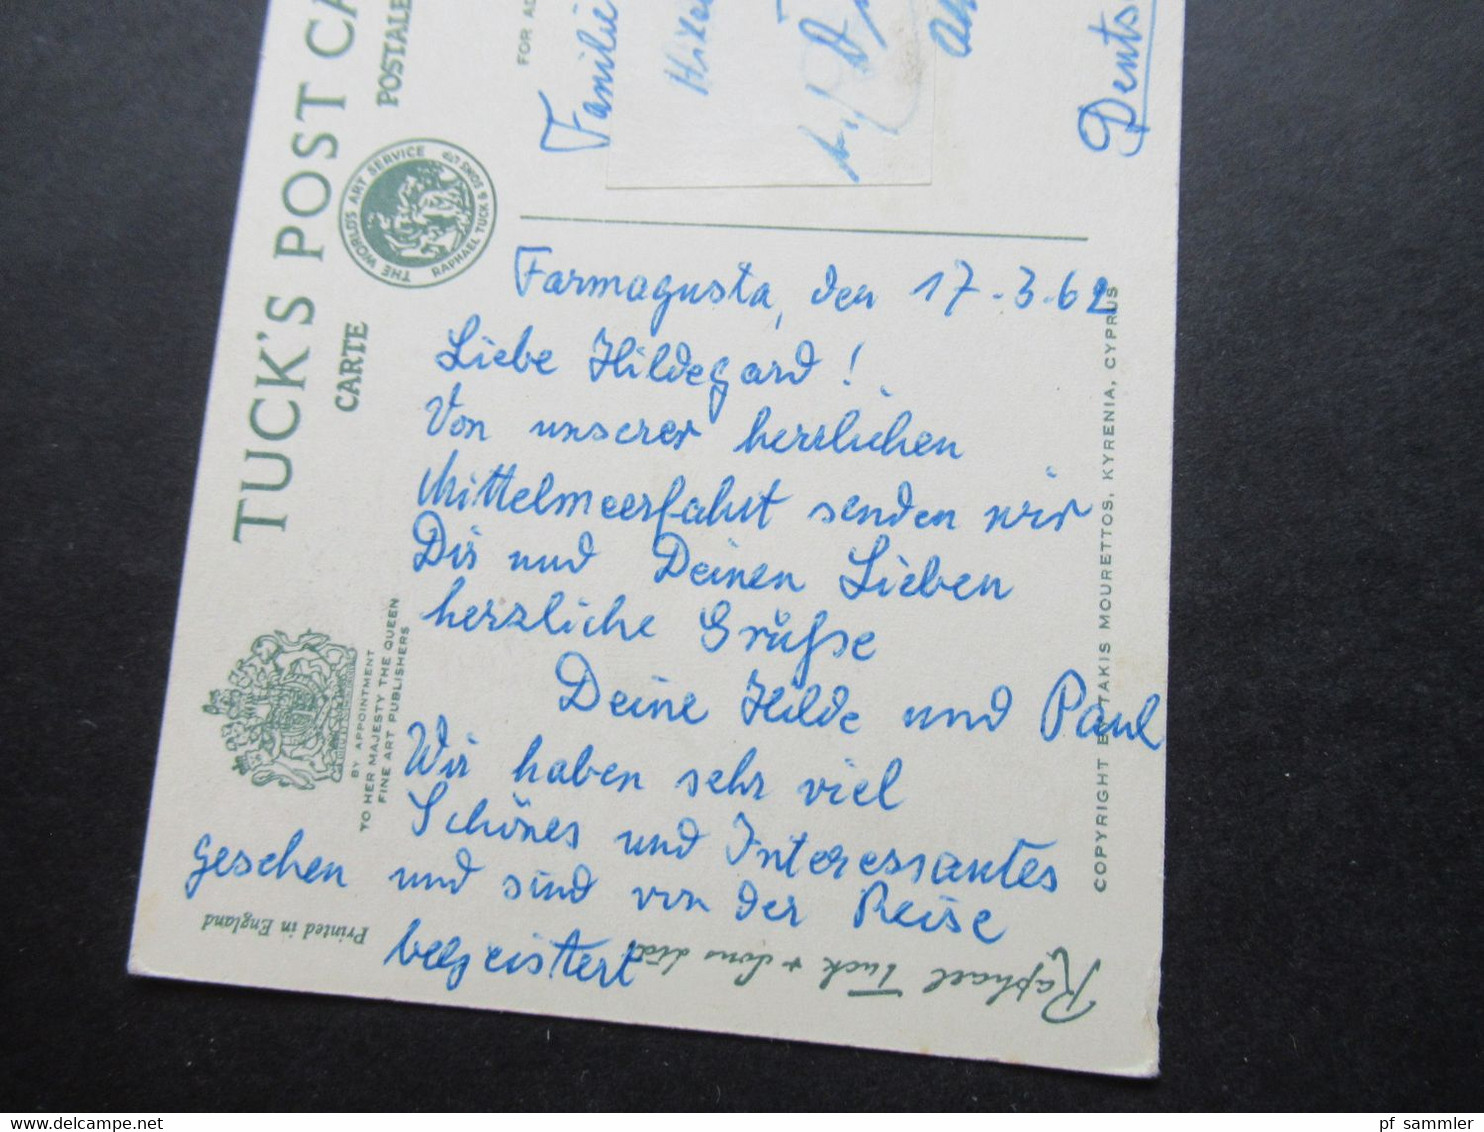 TUCK'S POST CA
CARTE POSTALE
THE WORLD'S ART SERVICE
RAPHAEL TUCK & SONS LTD
FOR AD
Familie
Farmagusta, den 17.3.62
Liebe Hildegard!
Von unserer herrlichen
Mittelmeerfahrt senden wir
Dir und Deinen Lieben
herzliche Grüße
Deine Hilde und Paul
Wir haben sehr viel
Schönes und Interessantes
gesehen und sind von der Reise
begeistert
BY APPOINTMENT
TO HER MAJESTY THE QUEEN
FINE ART PUBLISHERS
Printed in England
Raphael Tuck & Sons Ltd
COPYRIGHT BY TAKIS MOURETTOS, KYRENIA, CYPRUS
pf sammler
delcampe.net